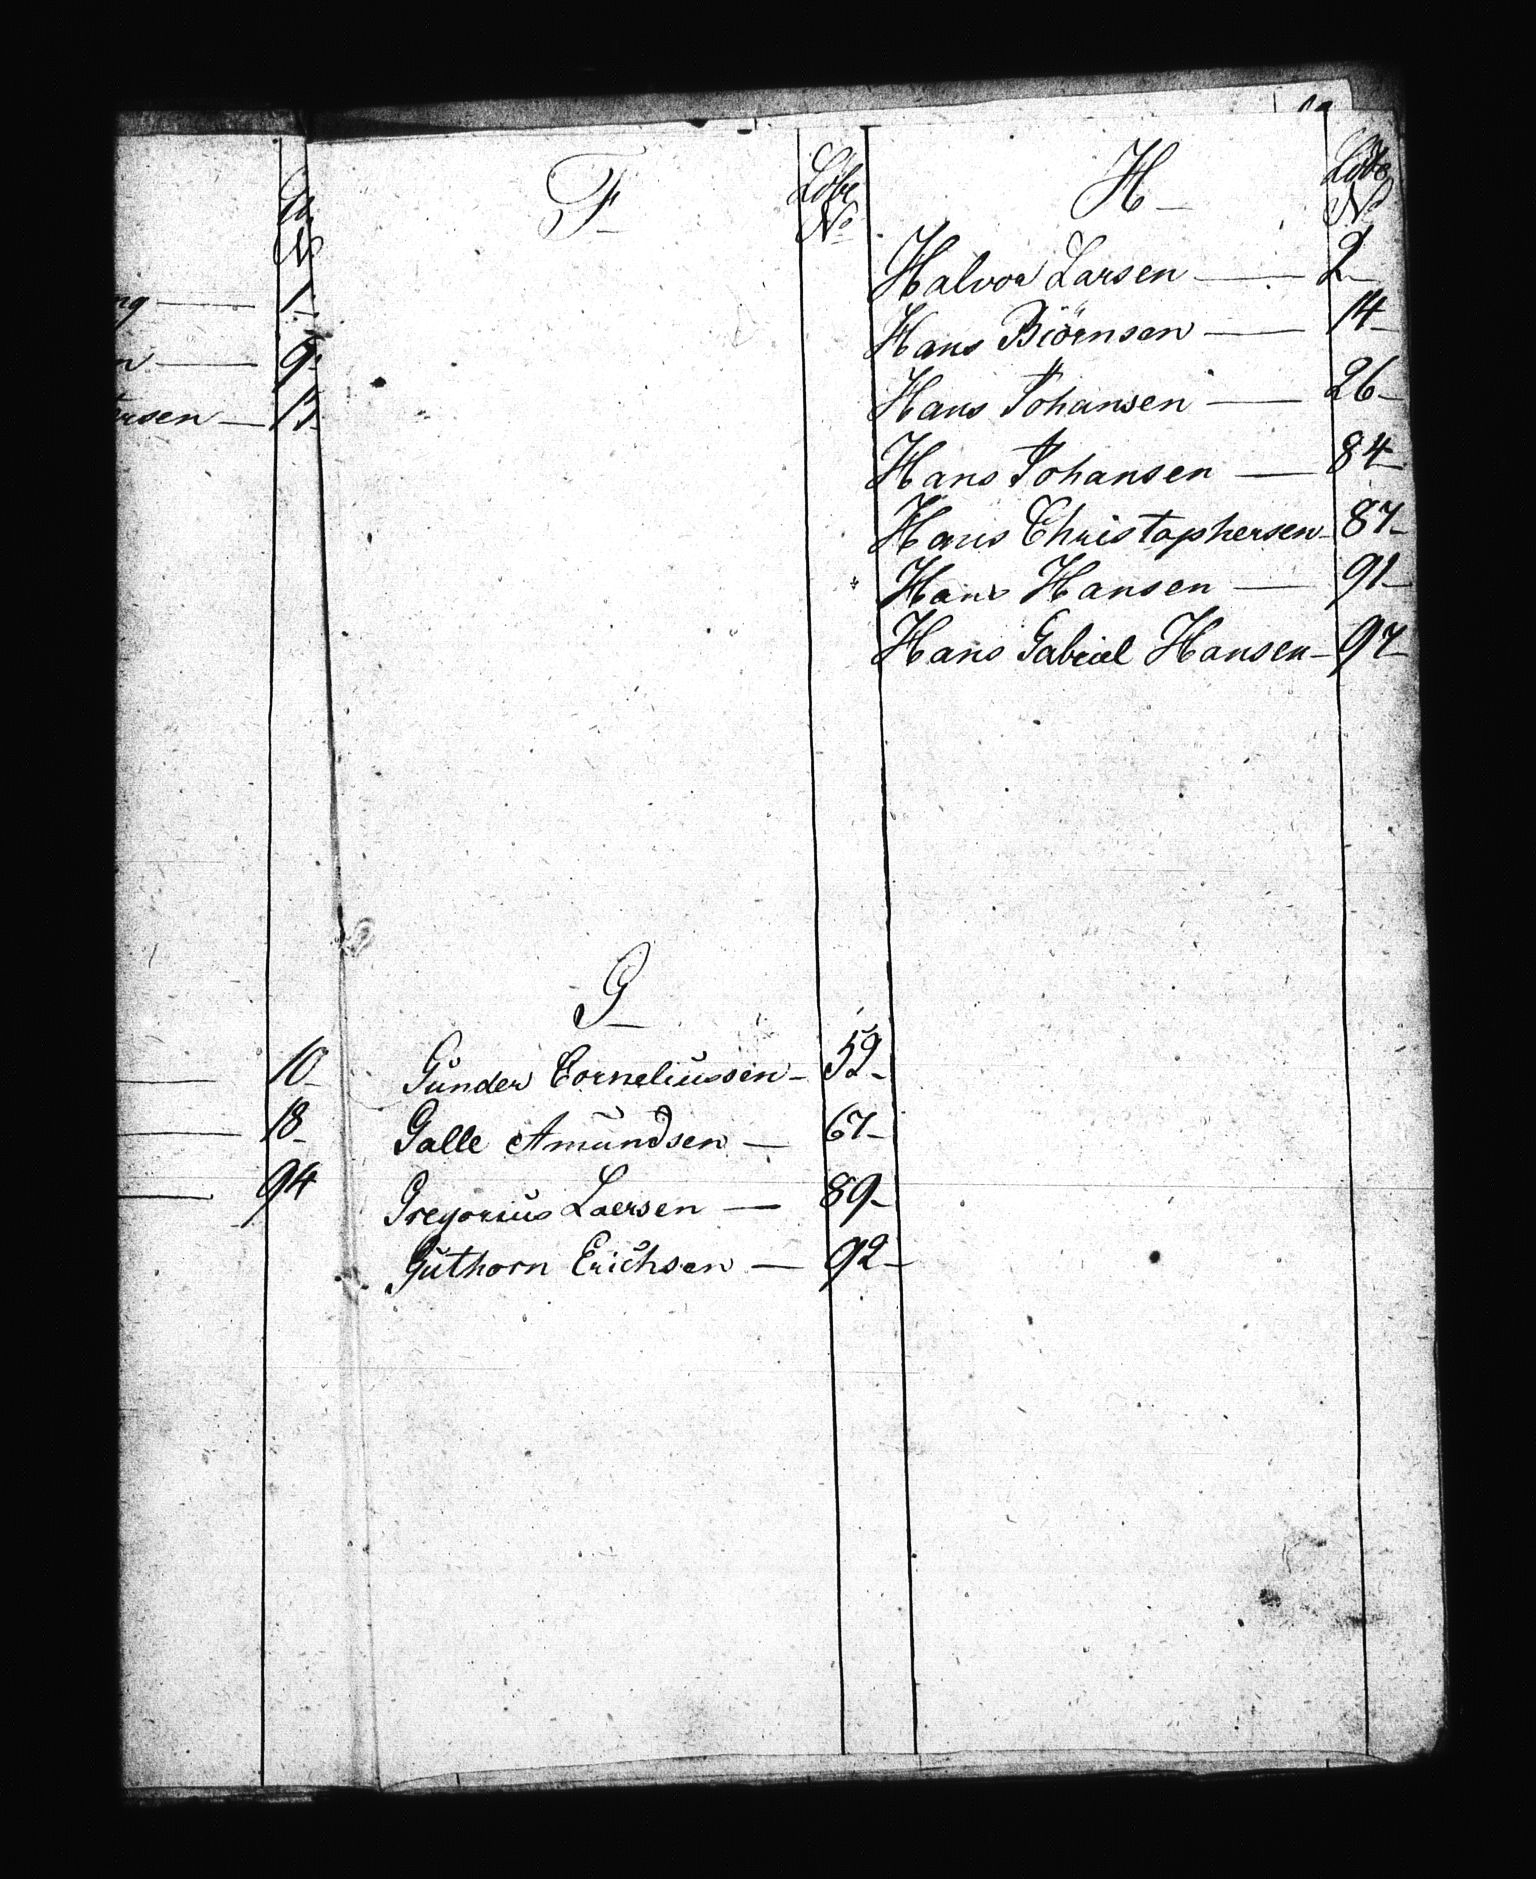 1
9
rsen — 13
10
18
94
F
Löbe
No
G
Gunder Corneliussen — 59
Galle Amundsen — 67
Gregorius Laersen — 89
Guthorn Erichsen — 92
H
Löbe
No
Halvor Larsen — 2
Hans Biörnsen — 14
Hans Johansen — 26
Hans Johansen — 84
Hans Christophersen — 87
Hans Hansen — 91
Hans Gabriel Hansen — 97